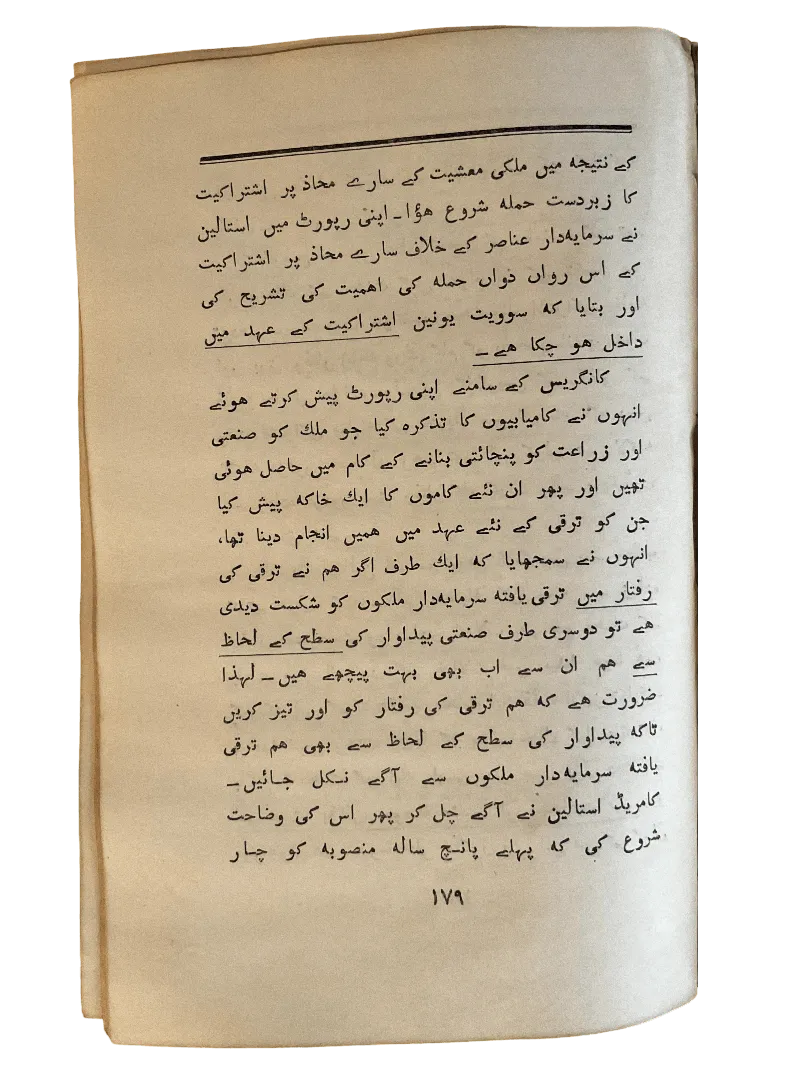 کے نتیجہ میں ملکی معشیت کے سارے محاذ پر اشتراکیت
کا زبردست حملہ شروع ھؤا۔ اپنی رپورٹ میں استالین
نے سرمایہدار عناصر کے خلاف سارے محاذ پر اشتراکیت
کے اس رواں دواں حملہ کی اھمیت کی تشریح کی
اور بتایا کہ سوویت یونین اشتراکیت کے عہد میں
داخل ھو چکا ھے۔
کانگریس کے سامنے اپنی رپورٹ پیش کرتے ھوئے
انہوں نے کامیابیوں کا تذکرہ کیا جو ملك کو صنعتی
اور زراعت کو پنچائتی بنانے کے کام میں حاصل ھوئی
تھیں اور پھر ان نئے کاموں کا ایك خاکہ پیش کیا
جن کو ترقی کے نئے عہد میں ھمیں انجام دینا تھا،
انہوں نے سمجھایا کہ ایك طرف اگر ھم نے ترقی کی
رفتار میں ترقی یافتہ سرمایہدار ملکوں کو شکست دیدی
ھے تو دوسری طرف صنعتی پیداوار کی سطح کے لحاظ
سے ھم ان سے اب بھی بہت پیچھے ھیں۔ لہذا
ضرورت ھے کہ ھم ترقی کی رفتار کو اور تیز کریں
تاکہ پیداوار کی سطح کے لحاظ سے بھی ھم ترقی
یافتہ سرمایہدار ملکوں سے آگے نکل جائیں۔
کامریڈ استالین نے آگے چل کر پھر اس کی وضاحت
شروع کی کہ پہلے پانچ سالہ منصوبہ کو چار
۱۷۹